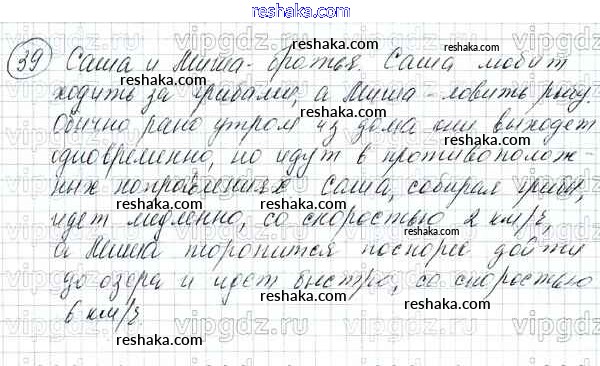 reshaka.com
39 Саша и Миша - братья. Саша любит
ходить за грибами, а Миша - ловить рыбу.
Обычно рано утром из дома они выходет
одновременно, но идут в противополож-
ных направлениях Саша, собирая грибы,
идет медленно, со скоростью 2 км/ч,
а Миша торопится поскорее дойти
до озера и идет быстро, со скоростью
6 км/ч.
reshaka.com
reshaka.com
reshaka.com
reshaka.com
reshaka.com
reshaka.com
reshaka.com
reshaka.com
reshaka.com
vipgdz.ru
vipgdz.ru
vipgdz.ru